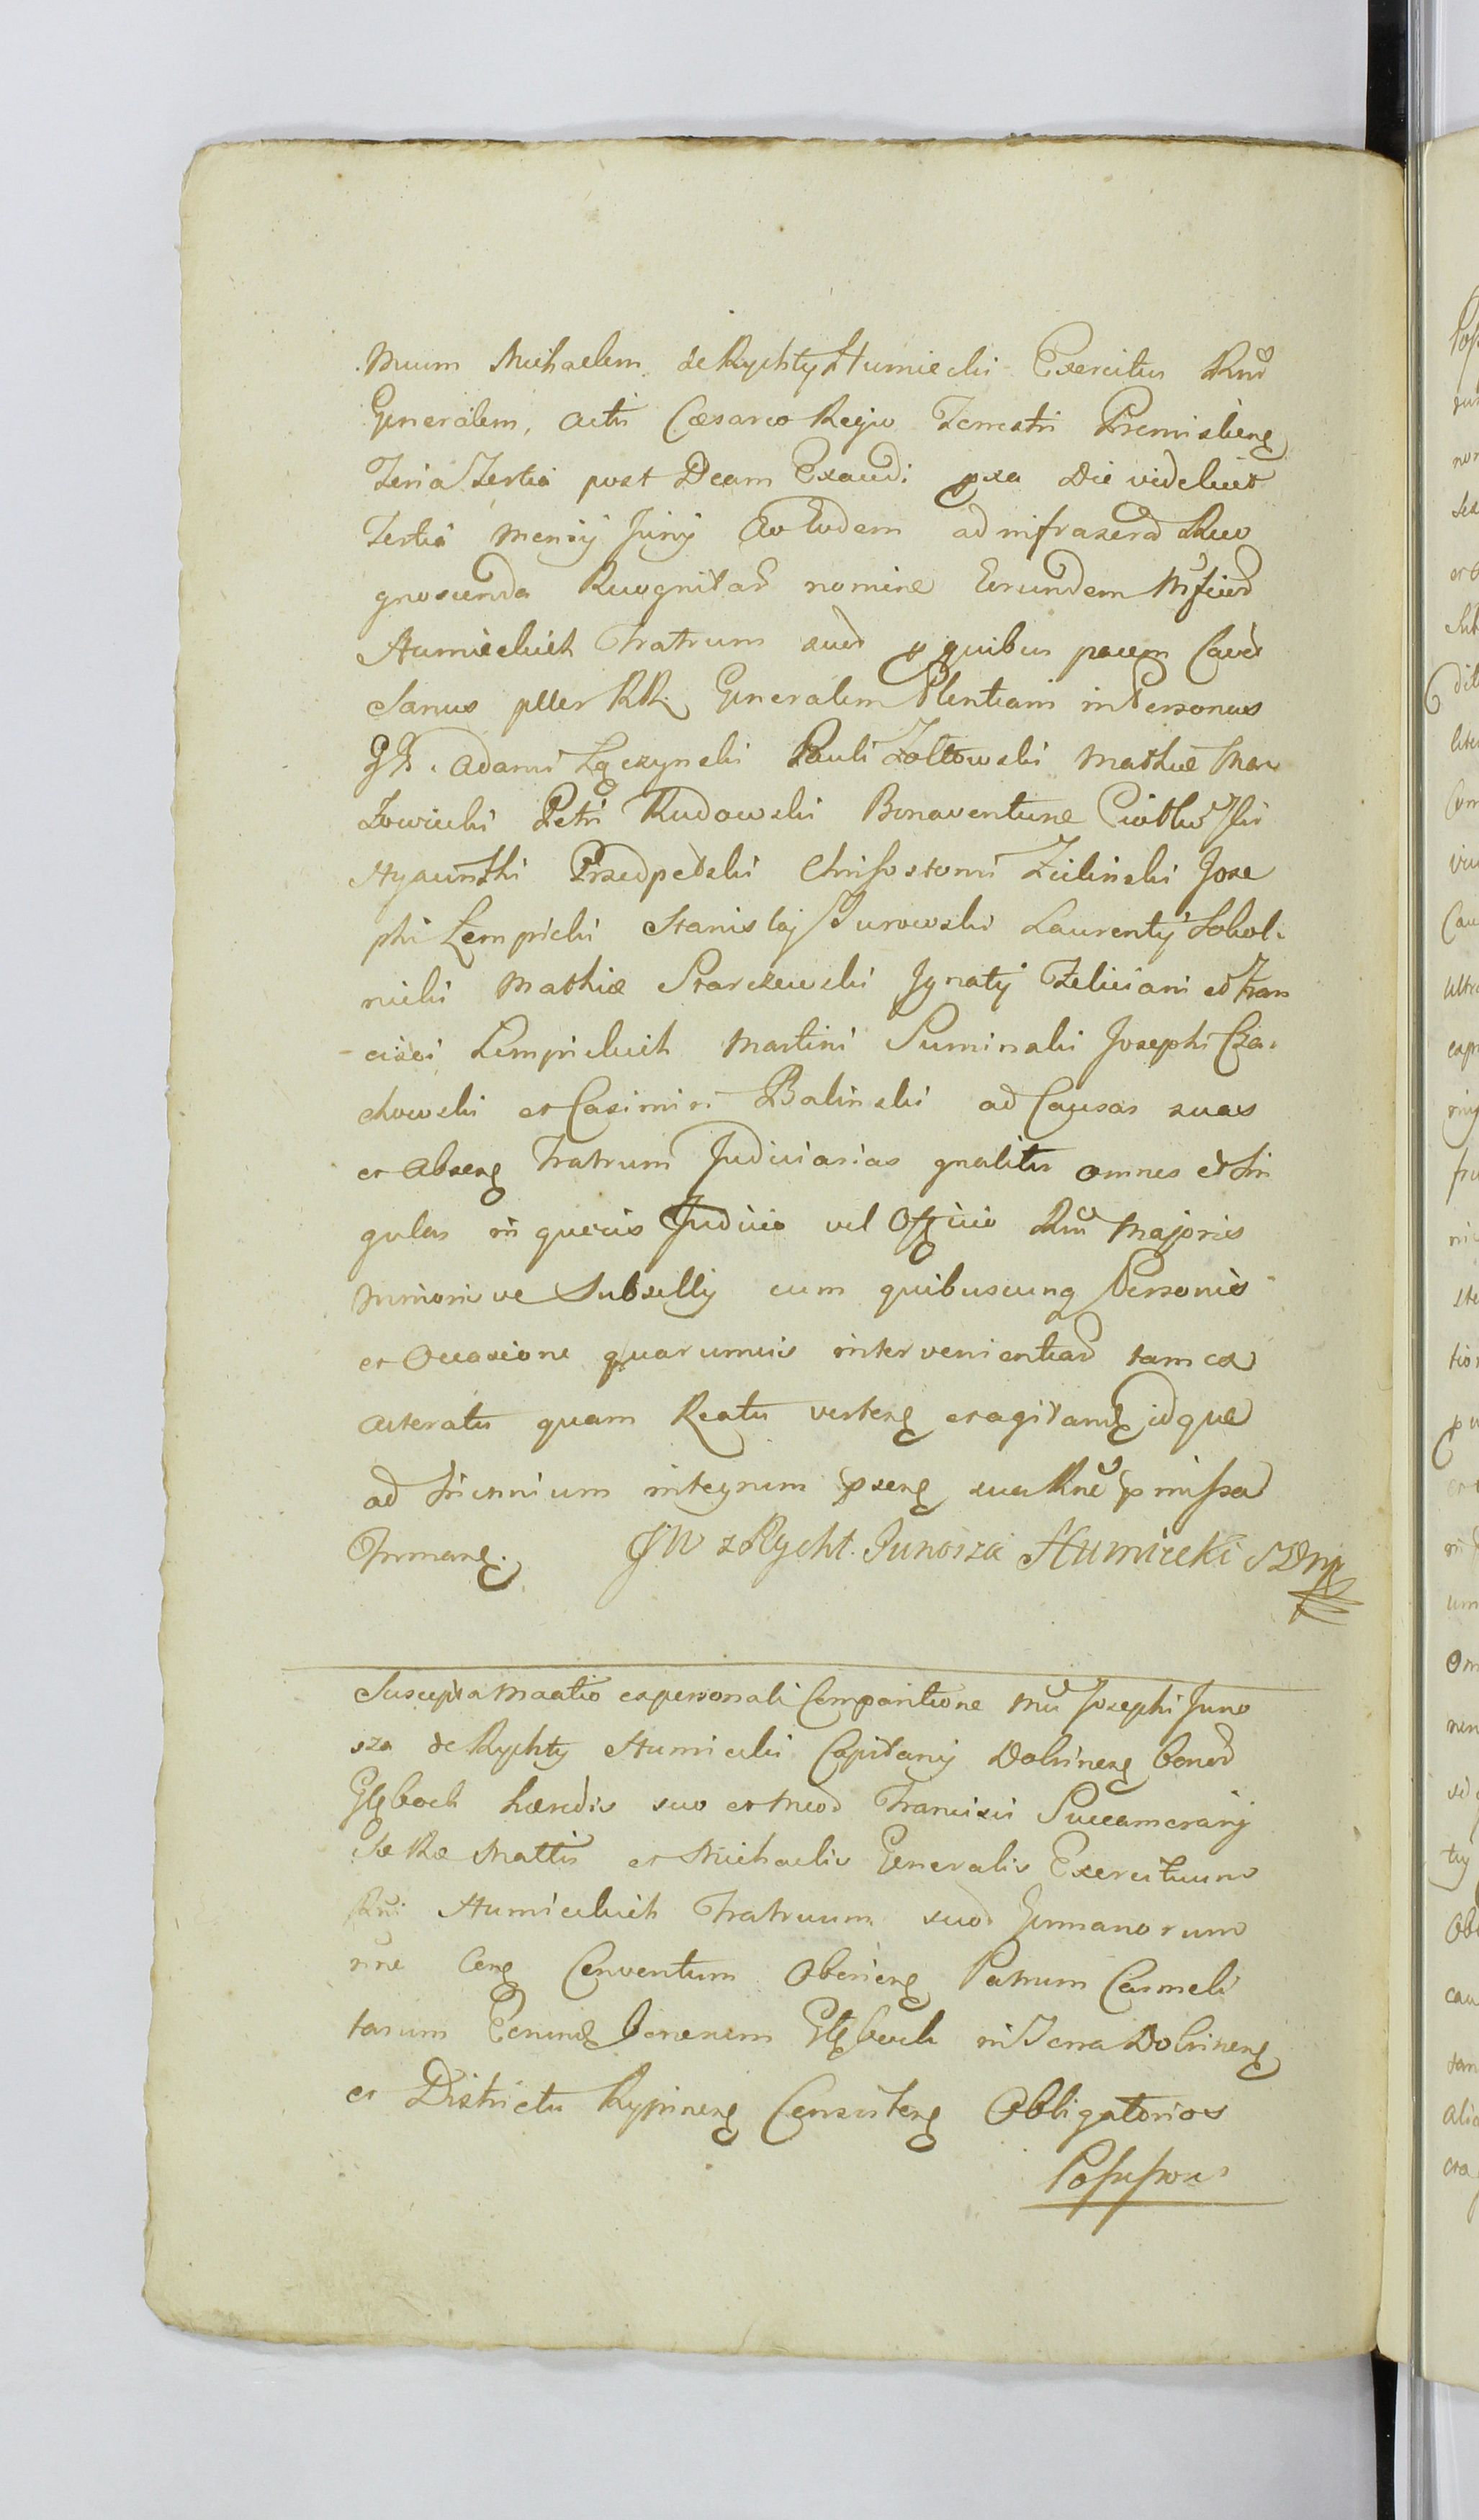 Mnum Michaelem de Rychty Humiecki Exercitus Rni
Generalem, actis Cæsareo Regio Terrestri Præmisliens
Feria Tertia post Dcam Exaudi ipsa Die videlicet
Tertia Mensis Junÿ eo eodem ad infrascrad Reco
gnoscenda Recognitad nomine Eorundem Mgficod
Humieckich Fratrum suod p quibus pacem Caved
Sanus pller RR Generalem Plentiam in Personas
GG. Adami Łączynski Pauli Zołtowski Mathiæ Mar
Petri Rudowski Bonaventuræ
Hyacinthi Przedpełski Chrisostomi Zielinski Jose
phi Łempicki Stanislaj Jurowski Laurentÿ Sokol-
nicki Mathiæ Starczewski Jgnatÿ Feliciani et Fran
-cisci Lempickich Martini Suminski Josephi Cza-
chowski et Casimiri Balinski ad Causas suas
et Absens Fratrum Judiciarias gnaliter omnes et Sin
gulas in quovis Judicio vel Officio Rni Majoris
minorisve Subsellÿ cum quibuscunq Personis
et Occasione quarumvis intervenientiad tam ex
Acteratu quam Reatu vertens et agitand idque
ad Triennium integrum psens sua Rne pmissa
Firmans. JW z Rycht. Junosza Humiecki SDmp

Suscepta Maatio ex personali Comparitione Mci Josephi Juno
sza de Rychty Humiecki Capitanÿ Dobrinens bonod
Głęboch hæredis suo et Mcod Francisci Succamerarÿ
Sæ Ræ Mattis et Michaelis Generalis Exercituum
Rni Humieckich Fratruum suod Germanorum
nne Cens Conventum Oboriens Patrum Carmeli
tarum bonorum Głęboch in Terra Dobrinens
et Districtu Rypinens Consistens Obligatorios
Possessores